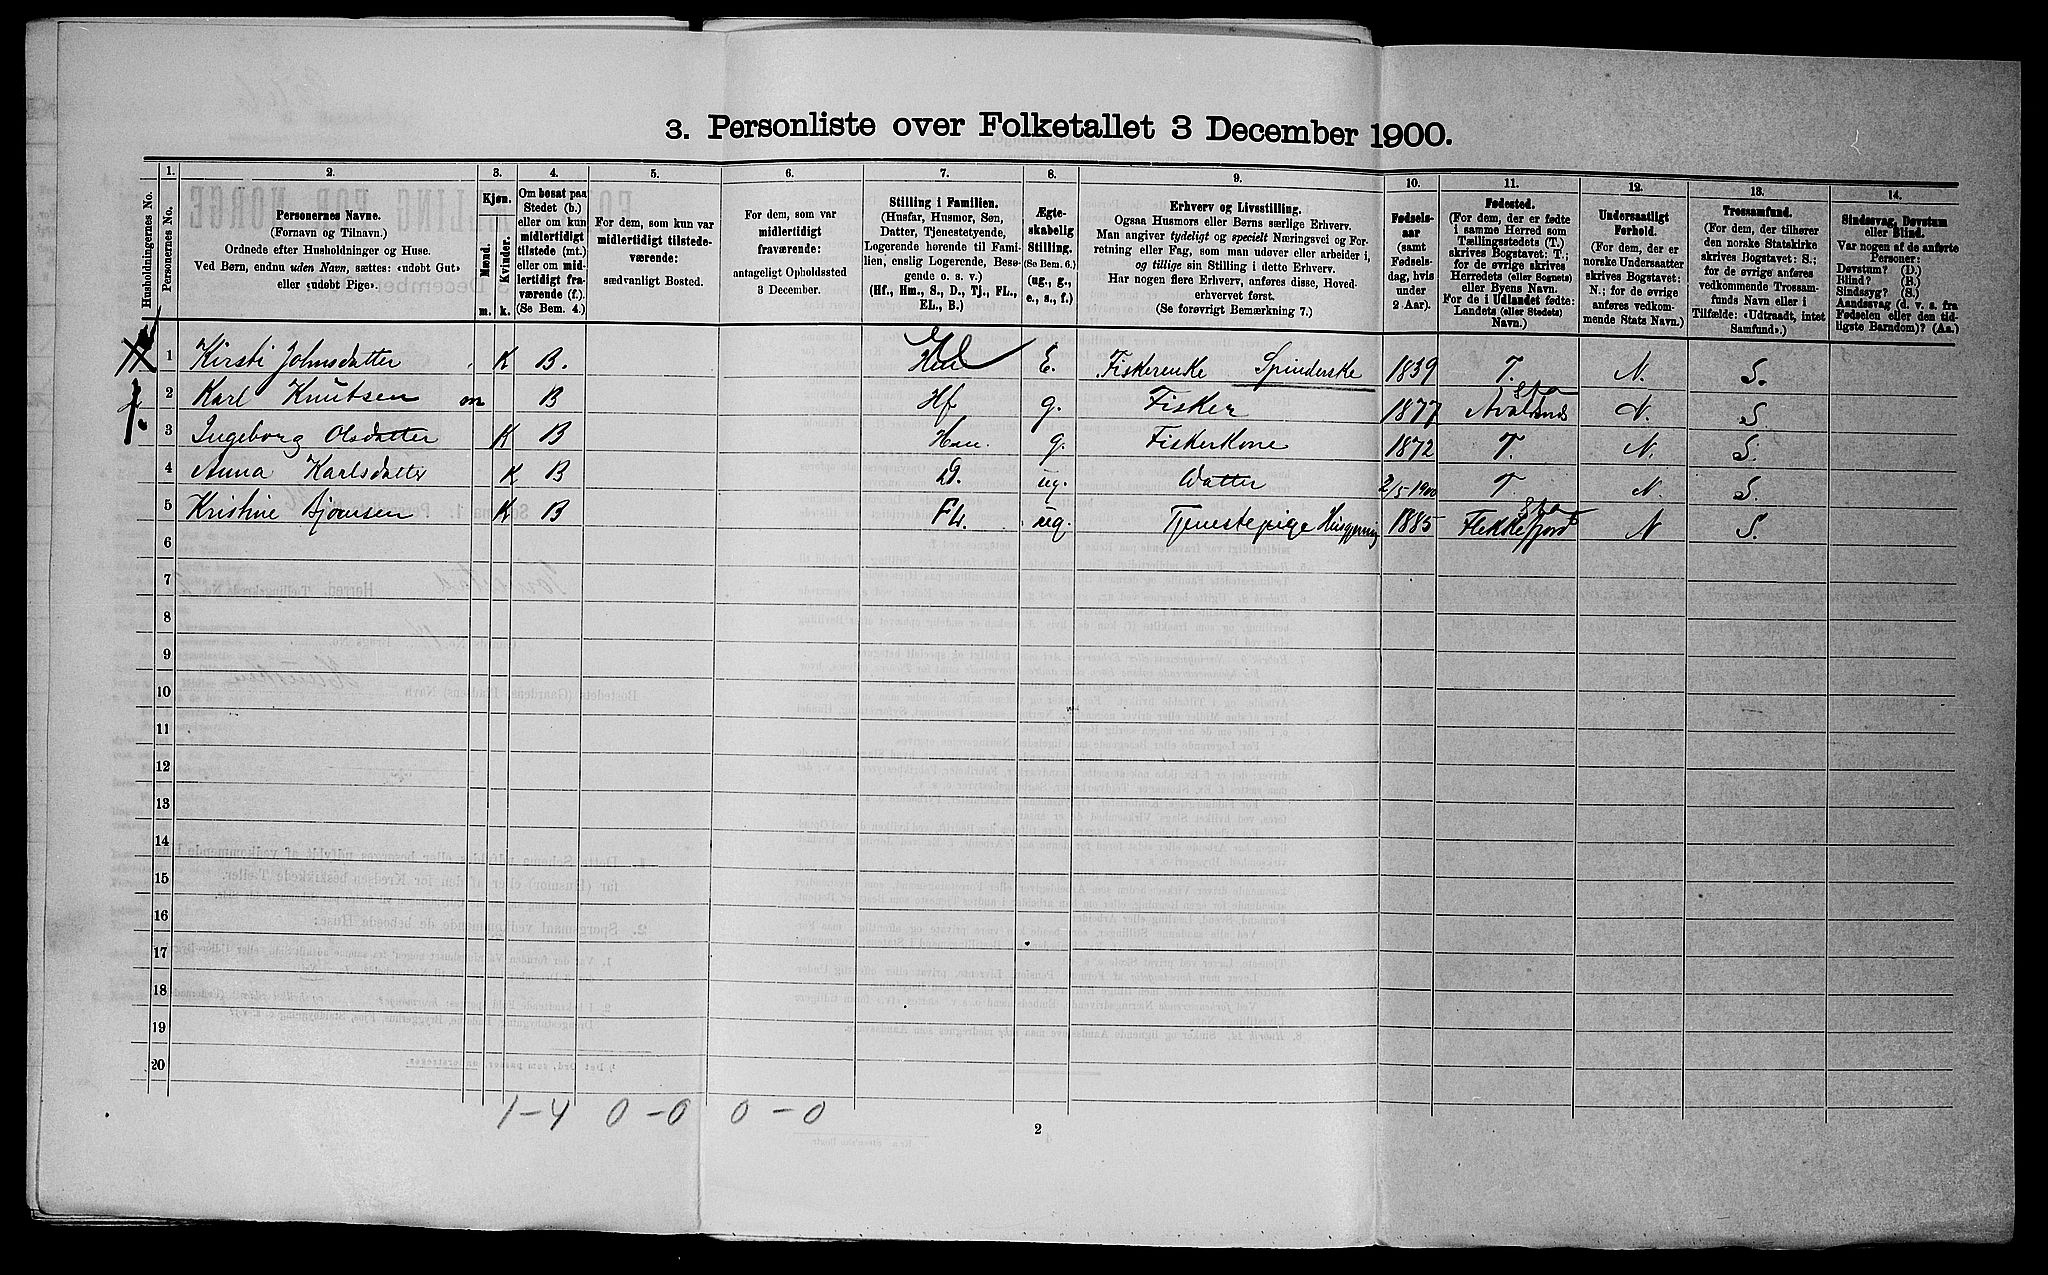 3. Personliste over Folketallet 3 December 1900.
1. 2. 3. 4. 5. 6. 7. 8. 9. 10. 11. 12. 13. 14.
Husholdningernes No.
Personernes No.
Personernes Navne.
(Fornavn og Tilnavn.)
Ordnede efter Husholdninger og Huse.
Ved Børn, endnu uden Navn, sættes: «udøbt Gut»
eller «udøbt Pige».
Kjøn.
Mænd.
Kvinder.
m. k.
Om bosat paa
Stedet (b.)
eller om kun
midlertidigt
tilstede (mt.)
eller om mid-
lertidigt fra-
værende (f.).
(Se Bem. 4.)
For dem, som kun var
midlertidigt tilstede-
værende:
sædvanligt Bosted.
For dem, som var
midlertidigt
fraværende:
antageligt Opholdssted
3 December.
Stilling i Familien.
(Husfar, Husmor, Søn,
Datter, Tjenestetyende,
Logerende hørende til Fami-
lien, enslig Logerende, Besø-
gende o. s. v.)
(Hf., Hm., S., D., Tj., FL.,
EL., B.)
Ægte-
skabelig
Stilling.
(Se Bem. 6.)
(ug., g.,
e., s., f.)
Erhverv og Livsstilling.
Ogsaa Husmors eller Børns særlige Erhverv.
Man angiver tydeligt og specielt Næringsvei og For-
retning eller Fag, som man udøver eller arbeider i,
og tillige sin Stilling i dette Erhverv.
Har nogen flere Erhverv, anføres disse, Hoved-
erhvervet først.
(Se forøvrigt Bemærkning 7.)
Fødsels-
aar
(samt
Fødsels-
dag, hvis
under
2 Aar).
Fødested.
(For dem, der er fødte
i samme Herred som
Tællingsstedets (T.)
skrives Bogstavet: T.;
for de øvrige skrives
Herredets (eller Sognets)
eller Byens Navn.
For de i Udlandet fødte:
Landets (eller Stedets)
Navn.)
Undersaatligt
Forhold.
(For dem, der er
norske Undersaatter
skrives Bogstavet:
N.; for de øvrige
anføres vedkom-
mende Stats Navn.)
Trossamfund.
(For dem, der tilhører
den norske Statskirke
skrives Bogstavet: S.;
for de øvrige anføres
vedkommende Trossam-
funds Navn eller i
Tilfælde: «Udtraadt, intet
Samfund».)
Sindssvag, Døvstum
eller Blind.
Var nogen af de anførte
Personer:
Døvstum? (D.)
Blind? (B.)
Sindssyg? (S.)
Aandssvag (d. v. s. fra
Fødselen eller den tid-
ligste Barndom)? (Aa.)
1 Kirsti Johnsdatter K B. El E. Fiskerenke Spinderske 1839 T. N. S.
2 Karl Knutsen m B Hf g. Fisker 1877 N. S.
3 Ingeborg Olsdatter K B Hm. g. Fiskerkone 1872 T. N. S.
4 Anna Karlsdatter K B D. ug. Datter 2/5-1900 T. N. S.
5 Kristine Bjørnsen K B FL. ug. Tjenestepige Husgjerning 1885 Flekkefjord N S.
6
7
8
9
10
11
12
13
14
15
16
17
18
19
20
1-4 0-0 0-0
2